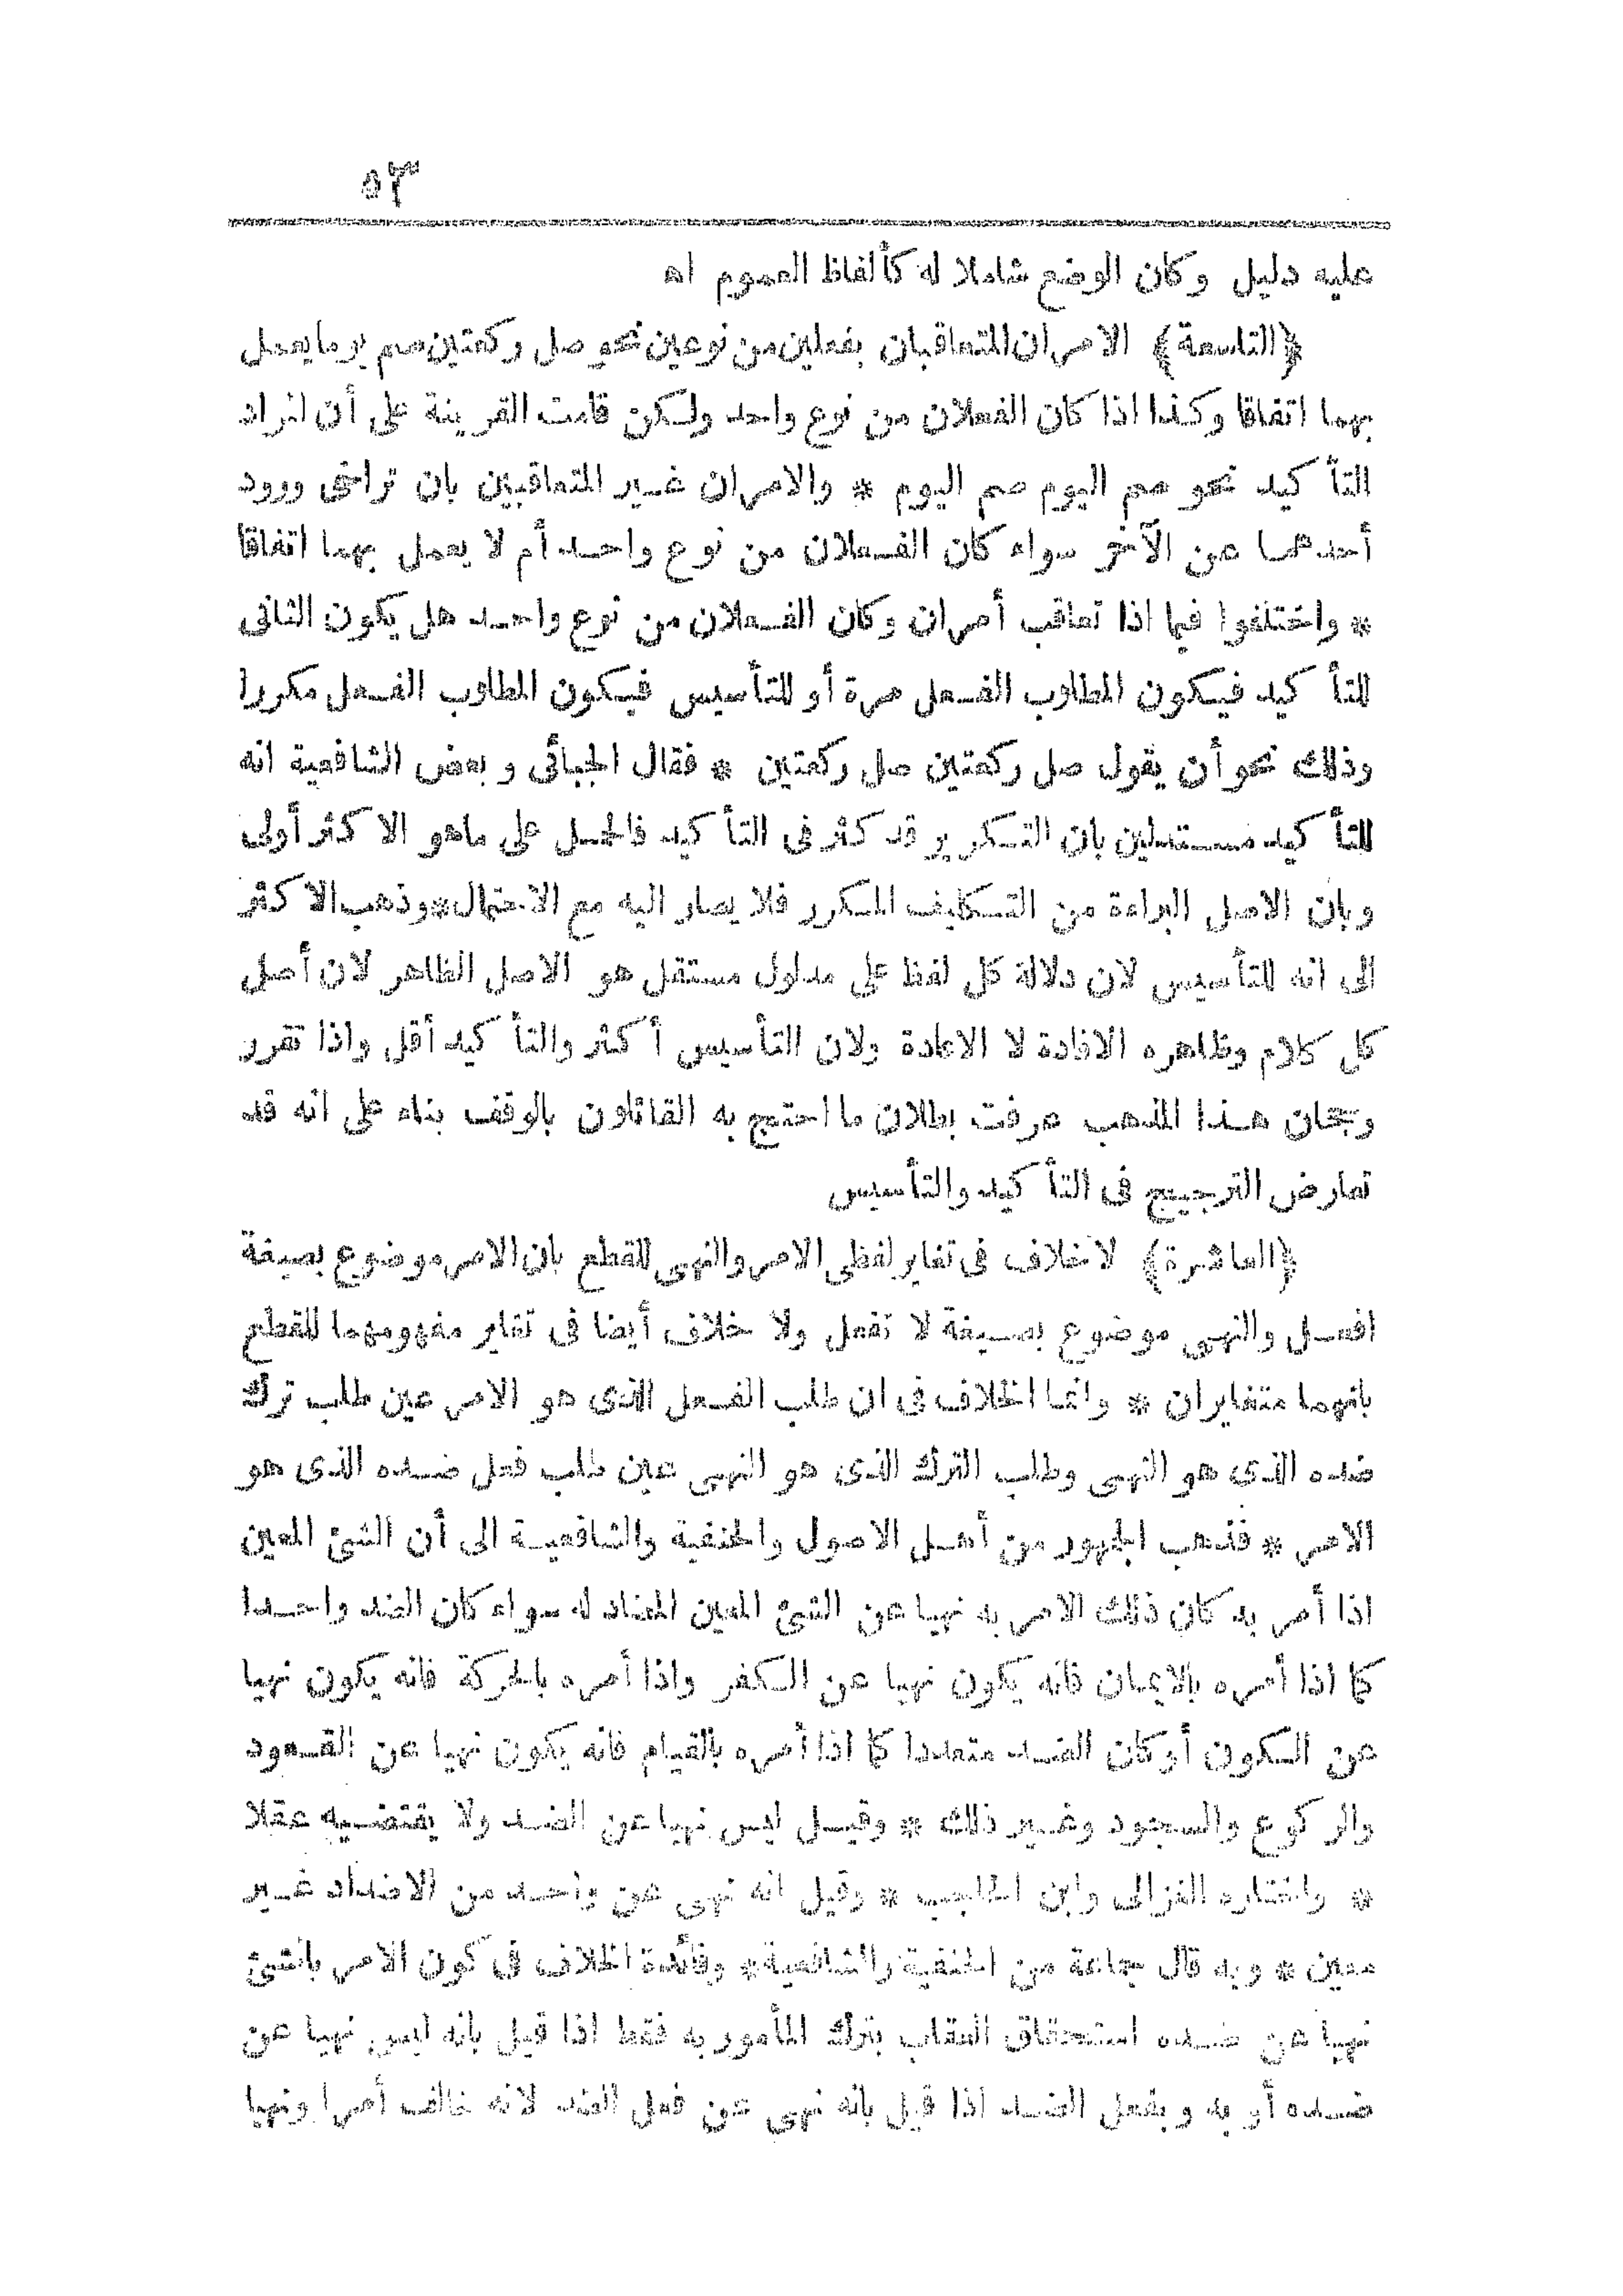 ٥٣
عليه دليل وكان الوضع شاملا له كألفاظ العموم اه
﴿التاسعة﴾ الامران المتعاقبان بفعلين من نوعين نحو صل ركعتين صم يوما يعمل
بهما اتفاقا وكذا اذا كان الفعلان من نوع واحد ولكن قامت القرينة على أن المراد
التأكيد نحو صم اليوم صم اليوم * والامران غير المتعاقبين بان تراخى ورود
أحدهما عن الآخر سواء كان الفعلان من نوع واحد أم لا يعمل بهما اتفاقا
* واختلفوا فيما اذا تعاقب أمران وكان الفعلان من نوع واحد هل يكون الثانى
للتأكيد فيكون المطلوب الفعل مرة أو للتأسيس فيكون المطلوب الفعل مكررا
وذلك نحو أن يقول صل ركعتين صل ركعتين * فقال الجبائى وبعض الشافعية انه
للتأكيد مستدلين بان التكرير قد كثر فى التأكيد فالحمل على ماهو الاكثر أولى
وبان الاصل البراءة من التكليف المكرر فلا يصار اليه مع الاحتمال * وذهب الاكثر
الى انه للتأسيس لان دلالة كل لفظ على مدلول مستقل هو الاصل الظاهر لان أصل
كل كلام وظاهره الافادة لا الاعادة ولان التأسيس أكثر والتأكيد أقل واذا تقرر
رجحان هذا المذهب عرفت بطلان ما احتج به القائلون بالوقف بناء على انه قد
تعارض الترجيح فى التأكيد والتأسيس
﴿العاشرة﴾ لاخلاف فى تغاير لفظى الامر والنهى للقطع بان الامر موضوع بصيغة
افعل والنهى موضوع بصيغة لا تفعل ولا خلاف أيضا فى تغاير مفهومهما للقطع
بانهما متغايران * وانما الخلاف فى ان طلب الفعل الذى هو الامر عين طلب ترك
ضده الذى هو النهى وطلب الترك الذى هو النهى عين طلب فعل ضده الذى هو
الامر * فذهب الجمهور من أهل الاصول والحنفية والشافعية الى أن الشئ المعين
اذا أمر به كان ذلك الامر به نهيا عن الشئ المعين المضاد له سواء كان الضد واحدا
كما اذا أمره بالايمان فانه يكون نهيا عن الكفر واذا أمره بالحركة فانه يكون نهيا
عن السكون أو كان الضد متعددا كما اذا أمره بالقيام فانه يكون نهيا عن القعود
والركوع والسجود وغير ذلك * وقيل ليس نهيا عن الضد ولا يقتضيه عقلا
* واختاره الغزالى وابن الحاجب * وقيل انه نهى عن واحد من الاضداد غير
معين * وبه قال جماعة من الحنفية والشافعية * وفائدة الخلاف فى كون الامر بالشئ
نهيا عن ضده استحقاق العقاب بترك المأمور به فقط اذا قيل بانه ليس نهيا عن
ضده أو به وبفعل الضد اذا قيل بانه نهى عن فعل الضد لانه خالف أمرا ونهيا